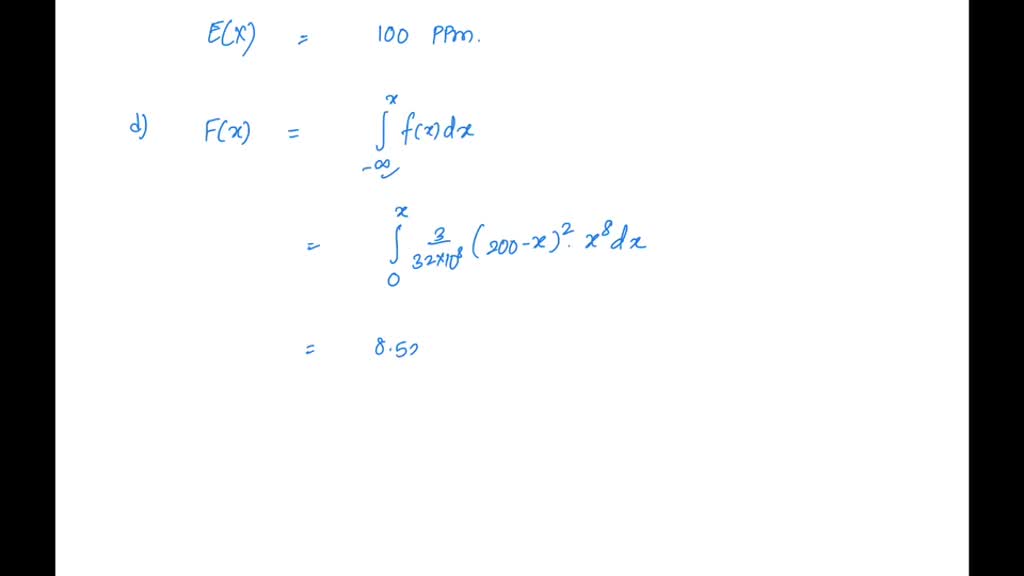 E(X) = 100 PPm.
d) F(x) = ∫_{-∞}^{x} f(x)dx
= ∫_{0}^{x} 3/(32×10^8) (200-x)^2. x^8 dx
= 8.52